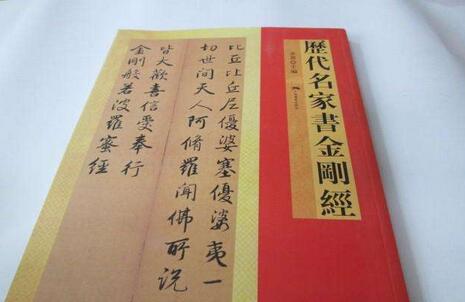 歷代名家書金剛經
比丘比丘尼優婆塞優婆夷一
切世間天人阿脩羅聞佛所說
皆大歡喜信受奉行
金剛般若波羅蜜經